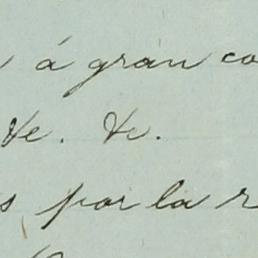 á gran co
&e. &e.
s por la r